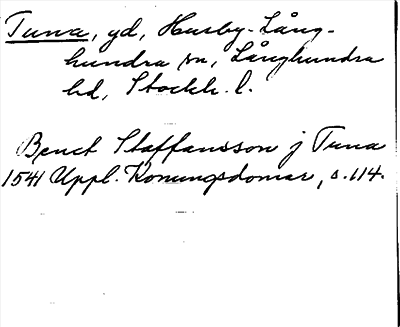 Tuna, yd, Husby-Lång-
hundra sn, Långhundra
hd, Stockh. l.
Benct Staffansson j Tuna
1541 Uppl. Konungsdomar, s. 114.